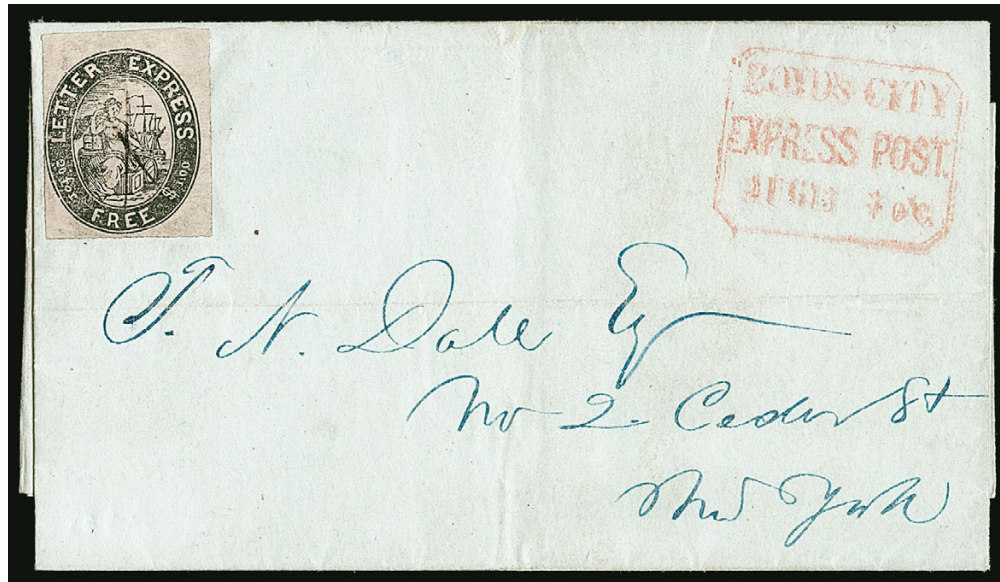 LETTER EXPRESS
FREE
20 for $1.00
BOYDS CITY
EXPRESS POST.
AUG 13
T. N. Dale Esq
No 2 Cedar St
New York